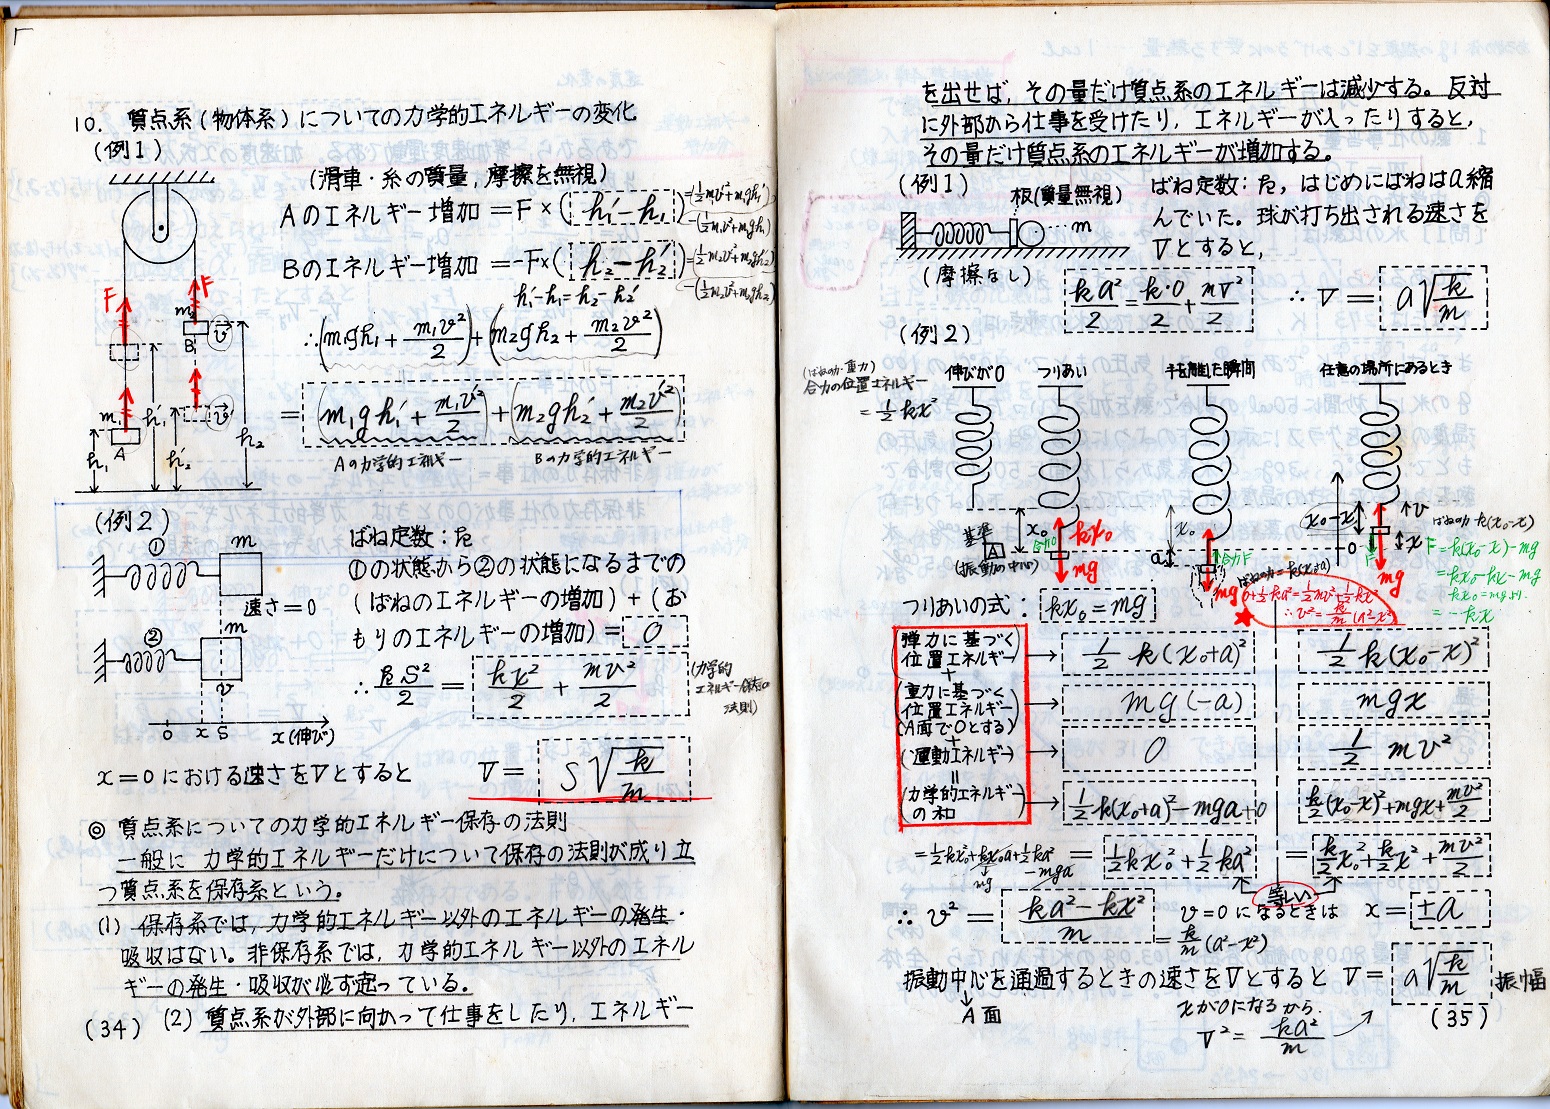 10. 質点系(物体系)についての力学的エネルギーの変化
(例1)
(滑車・糸の質量,摩擦を無視)
Aのエネルギー増加 =F×(h₁'−h₁)
=(½m₁v'²+m₁gh₁')
−(½m₁v²+m₁gh₁)
Bのエネルギー増加 =−F×(h₂−h₂')
=(½m₂v'²+m₂gh₂')
−(½m₂v²+m₂gh₂)
h₁'−h₁=h₂−h₂'
∴(m₁gh₁+m₁v²/2)+(m₂gh₂+m₂v²/2)
=(m₁gh₁'+m₁v'²/2)+(m₂gh₂'+m₂v'²/2)
Aの力学的エネルギー Bの力学的エネルギー
F F
m₂
B v
v'
m₁
A
h₁ h₁' h₂' h₂
(例2)
① m
速さ=0
② m
v
0 x S x(伸び)
ばね定数:k
①の状態から②の状態になるまでの
(ばねのエネルギーの増加)+(お
もりのエネルギーの増加)=0
∴ kS²/2 = kx²/2 + mv²/2
(力学的
エネルギー保存の
法則)
x=0における速さをVとすると V=S√(k/m)
◎ 質点系についての力学的エネルギー保存の法則
一般に 力学的エネルギーだけについて保存の法則が成り立
つ質点系を保存系という。
(1) 保存系では,力学的エネルギー以外のエネルギーの発生・
吸収はない。非保存系では,力学的エネルギー以外のエネル
ギーの発生・吸収が必ず起っている。
(2) 質点系が外部に向かって仕事をしたり,エネルギー
(34)
を出せば,その量だけ質点系のエネルギーは減少する。反対
に外部から仕事を受けたり,エネルギーが入ったりすると,
その量だけ質点系のエネルギーが増加する。
(例1)
板(質量無視)
m
(摩擦なし)
ばね定数:k,はじめにばねはa縮
んでいた。球が打ち出される速さを
Vとすると,
ka²/2=k・0/2+mV²/2 ∴ V=a√(k/m)
(例2)
(ばねの力・重力)
合力の位置エネルギー
=½kx²
伸びが0 つりあい 手を離した瞬間 任意の場所にあるとき
基準 A
(振動の中心)
x₀ kx₀ mg
合力0
x₀ a 合力F mg
ばねの力=k(x₀+a)
x₀−x 0 v x F mg
ばねの力 k(x₀−x)
F=k(x₀−x)−mg
=kx₀−kx−mg
kx₀=mgより
=−kx
0+½ka²=½mv²+½kx²
∴v²=k/m(a²−x²)
★
つりあいの式:kx₀=mg
(弾力に基づく
位置エネルギー) → ½k(x₀+a)² ½k(x₀−x)²
+
(重力に基づく
位置エネルギー
(A面で0とする)) → mg(−a) mgx
+
(運動エネルギー) → 0 ½mv²
=
(力学的エネルギー
の和) → ½k(x₀+a)²−mga+0 k/2(x₀−x)²+mgx+mv²/2
=½kx₀²+kx₀a+½ka²−mga
mg
=½kx₀²+½ka² =k/2x₀²+k/2x²+mv²/2
等しい
∴ v²=(ka²−kx²)/m v=0になるときは x=±a
=k/m(a²−x²)
振動中心を通過するときの速さをVとすると V=a√(k/m) 振幅
A面
xが0になるから.
V²=ka²/m
(35)